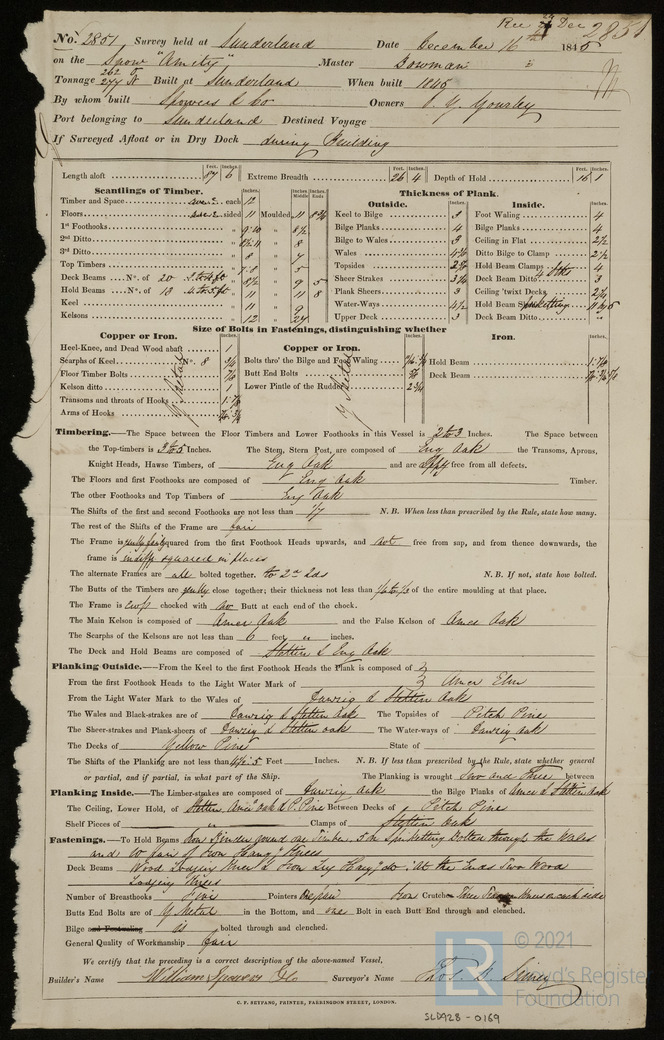 Rec 23 Dec 2851
No. 2851 Survey held at Sunderland Date December 16th 1845
on the Snow "Amity" Master Dowman
Tonnage 262 277 Built at Sunderland When built 1845
By whom built Spowers & Co Owners Gourley
Port belonging to Sunderland Destined Voyage
If Surveyed Afloat or in Dry Dock during Building
Length aloft 87 6 Extreme Breadth 26 4 Depth of Hold 16 1
Scantlings of Timber. Thickness of Plank.
Outside. Inside.
Timber and Space each 12 Keel to Bilge 3 Foot Waling 4
Floors sided 11 Moulded 11 Bilge Planks 4 Bilge Planks 4
1st Foothooks 9-10 8½ Bilge to Wales 3 Ceiling in Flat 2½
2nd Ditto 8 Wales 4½ Ditto Bilge to Clamp 2½
3rd Ditto 8 7 Topsides Hold Beam Clamps 4
Top Timbers 7-8 5 Sheer Strakes Deck Beam Ditto 3
Deck Beams No. of 20 8½ 9 5 Plank Sheers 3 Ceiling 'twixt Decks 2½
Hold Beams No. of 13 11 11 8 Water-Ways 4½ Hold Beam Spirketting
Keel 11 9 Upper Deck 3 Deck Beam Ditto
Kelsons 12
Size of Bolts in Fastenings, distinguishing whether
Copper or Iron. Copper or Iron. Iron.
Heel-Knee, and Dead Wood abaft 1
Scarphs of Keel No. 8 Bolts thro' the Bilge and Foot Waling Hold Beam
Floor Timber Bolts 7/8 Butt End Bolts Deck Beam
Kelson ditto 1 Lower Pintle of the Rudder 2¾
Transoms and throats of Hooks
Arms of Hooks
Y Metal Y Metal
Timbering.—The Space between the Floor Timbers and Lower Foothooks in this Vessel is 2 to 3 Inches. The Space between
the Top-timbers is 3 to 5 Inches. The Stem, Stern Post, are composed of Eng Oak the Transoms, Aprons,
Knight Heads, Hawse Timbers, of Eng Oak and are free from all defects.
The Floors and first Foothooks are composed of Eng Oak Timber.
The other Foothooks and Top Timbers of Eng Oak
The Shifts of the first and second Foothooks are not less than 1/7 N. B. When less than prescribed by the Rule, state how many.
The rest of the Shifts of the Frame are fair
The Frame is squared from the first Foothook Heads upwards, and not free from sap, and from thence downwards, the
frame is indiff squared in places
The alternate Frames are all bolted together to 2nd N. B. If not, state how bolted.
The Butts of the Timbers are genlly close together; their thickness not less than of the entire moulding at that place.
The Frame is cross chocked with no Butt at each end of the chock.
The Main Kelson is composed of Amer Oak and the False Kelson of Amer Oak
The Scarphs of the Kelsons are not less than 6 feet " inches.
The Deck and Hold Beams are composed of Stetten & Eng Oak
Planking Outside.—From the Keel to the first Foothook Heads the Plank is composed of
From the first Foothook Heads to the Light Water Mark of Amer Elm
From the Light Water Mark to the Wales of Danzig & Stetten Oak
The Wales and Black-strakes are of Danzig & Stetten Oak The Topsides of Pitch Pine
The Sheer-strakes and Plank-sheers of Danzig & Stetten Oak The Water-ways of Danzig Oak
The Decks of Yellow Pine State of
The Shifts of the Planking are not less than Feet Inches. N. B. If less than prescribed by the Rule, state whether general
or partial, and if partial, in what part of the Ship. The Planking is wrought Two and Three between
Planking Inside.—The Limber-strakes are composed of Danzig Oak the Bilge Planks of Amer & Stetten Oak
The Ceiling, Lower Hold, of Stetten, Amer Oak & P. Pine Between Decks of Pitch Pine
Shelf Pieces of " Clamps of Stetten Oak
Fastenings.—To Hold Beams Iron Binder round one Timber, Spirketting Bolted through the Wales
and 10 pair of Iron Hang Knees
Deck Beams Wood Lodging Knees & Iron Hang do. At the Ends Two Wood
Lodging Knees
Number of Breasthooks Five Pointers Iron Crutches on each side
Butts End Bolts are of Y Metal in the Bottom, and one Bolt in each Butt End through and clenched.
Bilge and Footwaling is bolted through and clenched.
General Quality of Workmanship fair
We certify that the preceding is a correct description of the above-named Vessel,
Builder's Name William Spowers & Co Surveyor's Name
C. F. SEYFANG, PRINTER, FARRINGDON STREET, LONDON.
SLD928-0169
LR © 2021
Lloyd's Register
Foundation